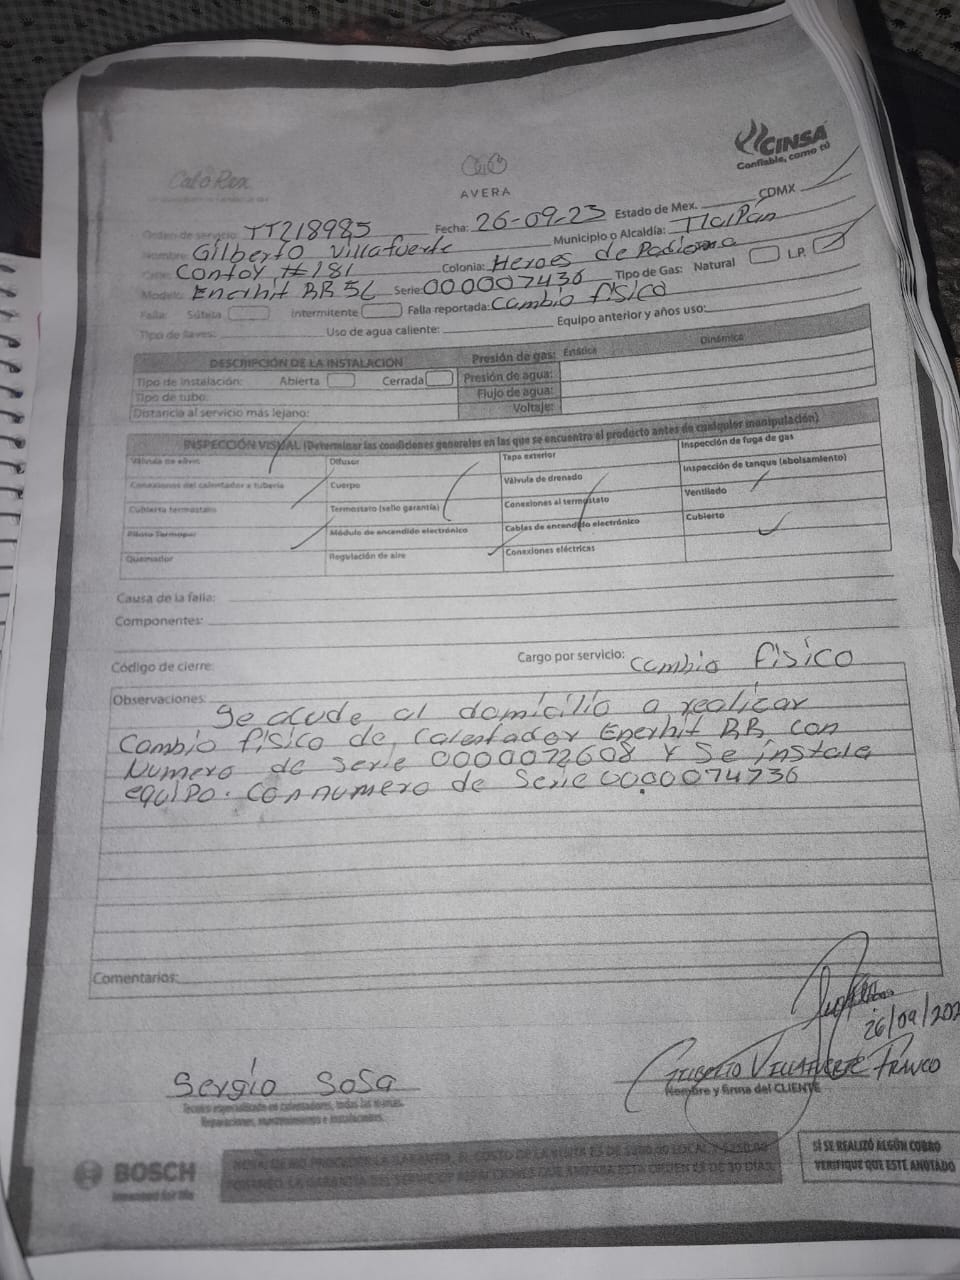 CINSA
Confiable, como tú
Calo Rex
AVERA
Orden de servicio: TT218985 Fecha: 26-09-23 Estado de Mex. CDMX
Nombre: Gilberto Villafuerte Municipio o Alcaldía: TlalPan
Calle: Contoy #181 Colonia: Heroes de Padierna
Modelo: Enerhit BR 5L Serie: 000007436 Tipo de Gas: Natural L.P.
Falla: Súbita Intermitente Falla reportada: Cambio físico
Tipo de llaves: Uso de agua caliente: Equipo anterior y años uso:
DESCRIPCIÓN DE LA INSTALACIÓN Presión de gas: Estática Dinámica
Tipo de instalación: Abierta Cerrada Presión de agua:
Tipo de tubo: Flujo de agua:
Distancia al servicio más lejano: Voltaje:
INSPECCIÓN VISUAL (Determinar las condiciones generales en las que se encuentra el producto antes de cualquier manipulación)
Válvula de alivio Difusor Tapa exterior Inspección de fuga de gas
Conexiones del calentador a tubería Cuerpo Válvula de drenado Inspección de tanque (abolsamiento)
Cubierta termostato Termostato (sello garantía) Conexiones al termostato Ventilado
Piloto Termopar Módulo de encendido electrónico Cables de encendido electrónico Cubierto
Quemador Regulación de aire Conexiones eléctricas
Causa de la falla:
Componentes:
Código de cierre: Cargo por servicio: Cambio físico
Observaciones: Se acude al domicilio a realizar
Cambio físico de Calentador Enerhit BR con
Numero de serie 0000072608 Y Se instala
equipo. Con numero de Serie 0000074736
Comentarios:
26/09/202
Sergio Sosa
Gilberto Villafuerte Franco
Nombre y firma del CLIENTE
Técnico especializado en calentadores, todas las marcas.
Reparaciones, mantenimiento e instalaciones.
BOSCH
NOTA: DE NO PROCEDER LA GARANTÍA, EL COSTO DE LA VISITA ES DE LOCAL Y
LA GARANTÍA DEL SERVICIO QUE AMPARA ESTA ORDEN ES DE 30 DÍAS.
SI SE REALIZÓ ALGÚN COBRO
VERIFIQUE QUE ESTÉ ANOTADO